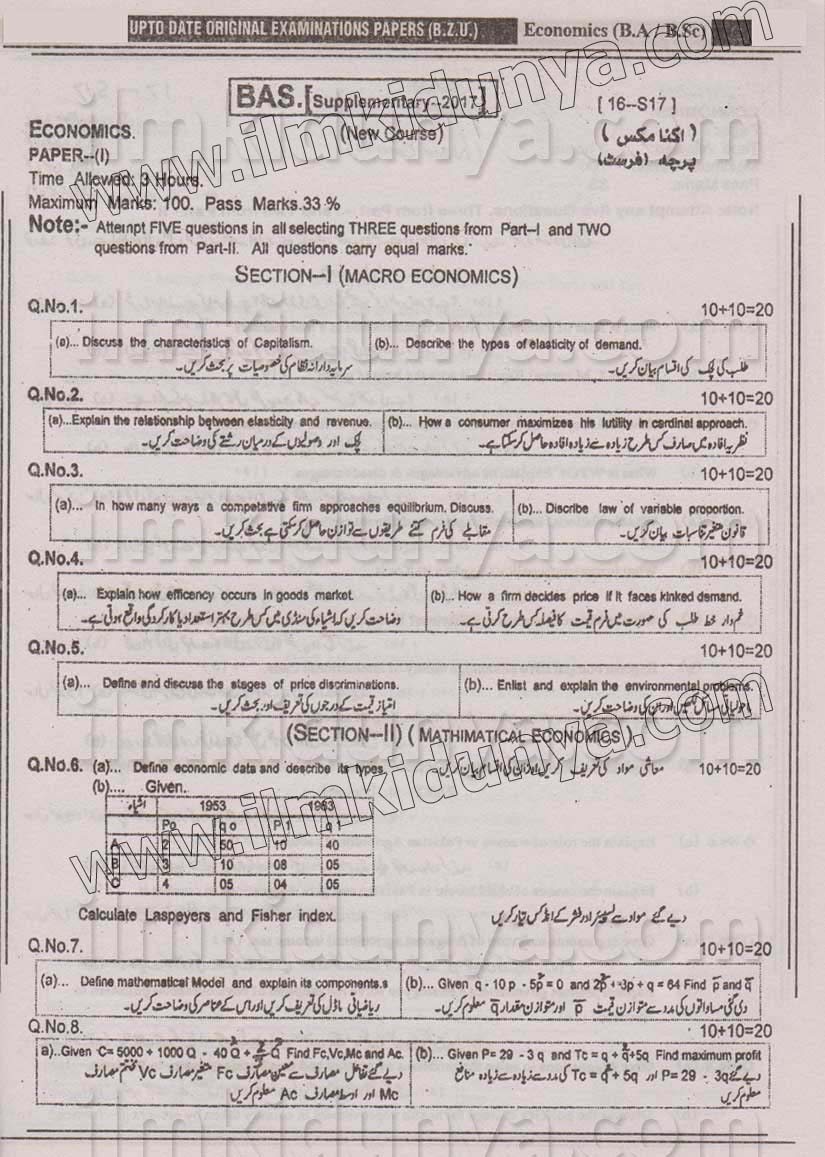 UPTO DATE ORIGINAL EXAMINATIONS PAPERS (B.Z.U.) Economics (B.A / B.Sc)
BAS.[Supplementary--2017] [ 16--S17 ]
ECONOMICS. (New Course) ( اکنا مکس )
PAPER--(I) پرچہ (فرسٹ)
Time Allowed: 3 Hours.
Maximum Marks: 100. Pass Marks.33 %
Note:- Attempt FIVE questions in all selecting THREE questions from Part–I and TWO
questions from Part-II. All questions carry equal marks.
SECTION--I (MACRO ECONOMICS)
Q.No.1. 10+10=20
(a)... Discuss the characteristics of Capitalism. (b)... Describe the types of elasticity of demand.
سرمایہ دارانہ نظام کی خصوصیات پر بحث کریں۔ طلب کی لچک کی اقسام بیان کریں۔
Q.No.2. 10+10=20
(a)...Explain the relationship between elasticity and revenue. (b)... How a consumer maximizes his lutility in cardinal approach.
لچک اور وصولیوں کے درمیان رشتے کی وضاحت کریں۔ نظریہ افادہ میں صارف کس طرح زیادہ سے زیادہ افادہ حاصل کرسکتا ہے۔
Q.No.3. 10+10=20
(a)... In how many ways a competative firm approaches equilibrium. Discuss. (b)... Discribe law of variable proportion.
مقابلے کی فرم کتنے طریقوں سے توازن حاصل کرسکتی ہے بحث کریں۔ قانون متغیر تناسبات بیان کریں۔
Q.No.4. 10+10=20
(a)... Explain how efficency occurs in goods market. (b)... How a firm decides price if it faces kinked demand.
وضاحت کریں کہ اشیاء کی منڈی میں کس طرح بہتر استعداد یا کارکردگی واقع ہوتی ہے۔ خم دار خط طلب کی صورت میں فرم قیمت کا فیصلہ کس طرح کرتی ہے۔
Q.No.5. 10+10=20
(a)... Define and discuss the stages of price discriminations. (b)... Enlist and explain the environmental problems.
امتیاز قیمت کے درجوں کی تعریف اور بحث کریں۔ ماحولیاتی مسائل لکھیں اور ان کی وضاحت کریں۔
(SECTION--II) ( MATHIMATICAL ECONOMICS ).
Q.No.6. (a)... Define economic data and describe its types. معاشی مواد کی تعریف کریں اور ان کی اقسام بیان کریں۔ 10+10=20
(b).... Given.
اشیاء 1953 1963
Po q o P 1 q 1
A 2 50 10 40
B 3 10 08 05
C 4 05 04 05
Calculate Laspeyers and Fisher index. دیے گئے مواد سے لسپیئر اور فشر کے انڈکس تیار کریں
Q.No.7. 10+10=20
(a)... Define mathematical Model and explain its components.s (b)... Given q - 10 p - 5p²= 0 and 2p²+ 3p + q = 64 Find p̄ and q̄
ریاضیاتی ماڈل کی تعریف کریں اور اس کے عناصر کی وضاحت کریں۔ دی گئی مساواتوں کی مدد سے متوازن قیمت p̄ اور متوازن مقدار q̄ معلوم کریں۔
Q.No.8. 10+10=20
a)..Given C= 5000 + 1000 Q - 40 Q + Q Find Fc,Vc,Mc and Ac. (b)... Given P= 29 - 3 q and Tc = q + q²+5q Find maximum profit
دیے گئے تفاعل مصارف سے معین مصارف Fc متغیر مصارف Vc مختتم مصارف دیے گئے P= 29 - 3q اور Tc = q² + 5q کی مدد سے زیادہ سے زیادہ منافع
Mc اور اوسط مصارف Ac معلوم کریں معلوم کریں
www.ilmkidunya.com
www.ilmkidunya.com
ilmkidunya.com